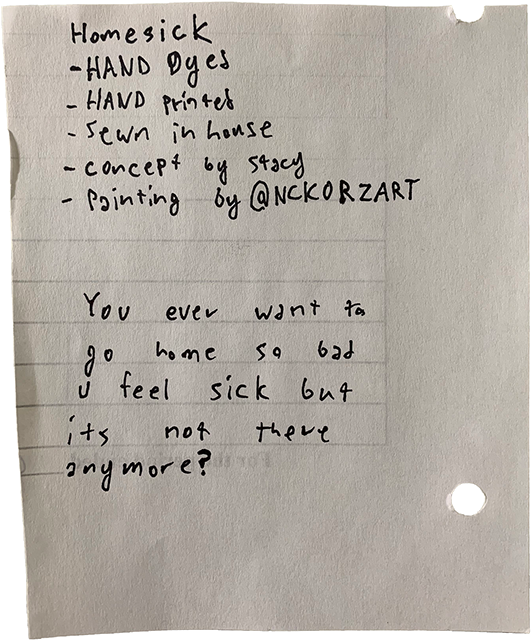 Homesick
- HAND Dyes
- HAND printed
- Sewn in house
- concept by stacy
- Painting by @NCKORZART
You ever want to
go home so bad
u feel sick but
its not there
anymore?